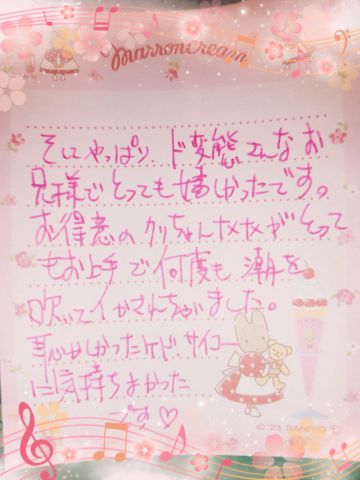 Marroncream
そしてやっぱり ド変態さんなお
兄様でとっても嬉しかったです。
お得意のクリちゃんナメナメがとって
もお上手で何度も潮を
吹いてイかさんちゃいました。
恥ずかしかったけど、サイコー
に気持ちよかった
です♡
© '23 SANRIO